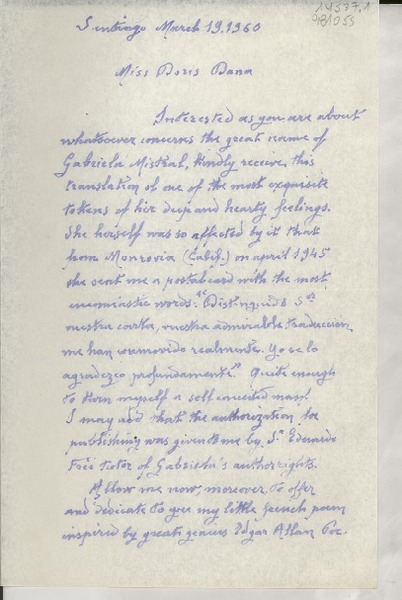 Santiago March 19, 1960
Miss Doris Dana
Interested as you are about
whatsoever concerns the great name of
Gabriela Mistral, kindly receive this
translation of one of the most exquisite
tokens of her deep and hearty feelings.
She herself was so affected by it that
from Monrovia (Calif.) on april 1945
she sent me a postalcard with the most
encomiastic words: "Distinguido Sor
vuestra carta, vuestra admirable traduccion,
me han conmovido realmente. Yo se lo
agradezco profundamente". Quite enough
to turn myself a self conceited man!
I may add that the authorization for
publishing was given to me by Sr Eduardo
Frei tutor of Gabriela's authorrights.
Allow me now, moreover, to offer
and dedicate to you my little french poem
inspired by great genius Edgar Allan Poe.